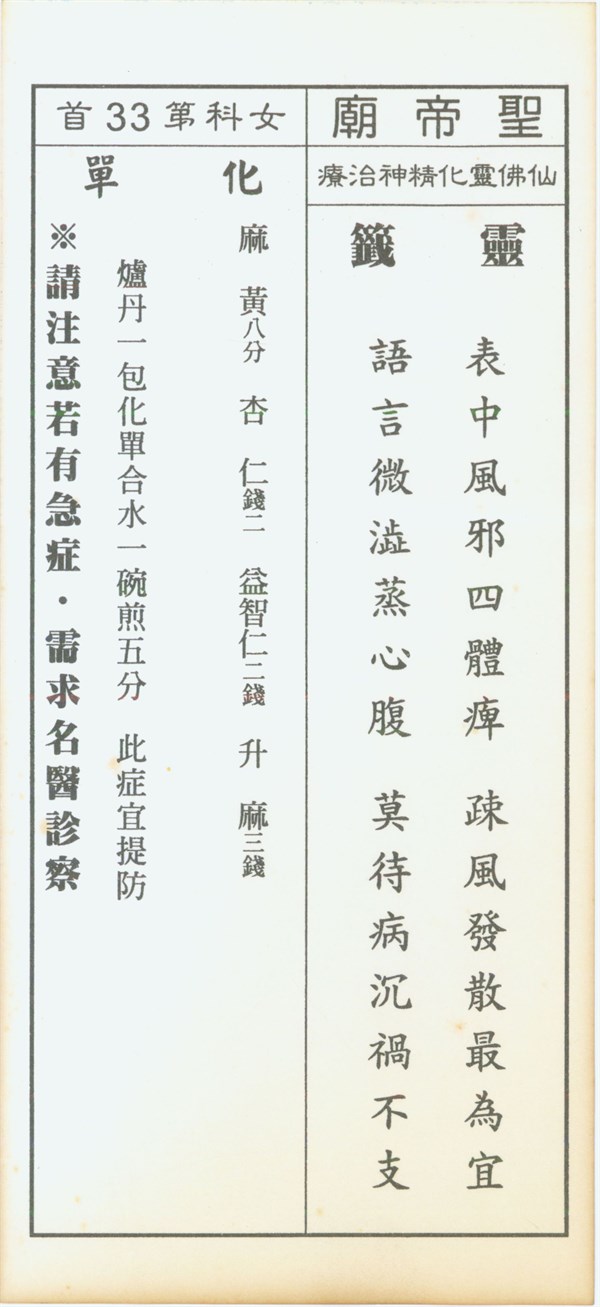 聖帝廟
仙佛靈化精神治療
靈籤
表中風邪四體痺 疎風發散最為宜
語言微澁蒸心腹 莫待病沉禍不支
女科第33首
化單
麻黃八分 杏仁錢二 益智仁二錢 升麻三錢
爐丹一包化單合水一碗煎五分 此症宜提防
※請注意若有急症・需求名醫診察